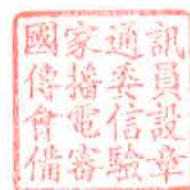 國家通訊
傳播委員
會電信設
備審驗章